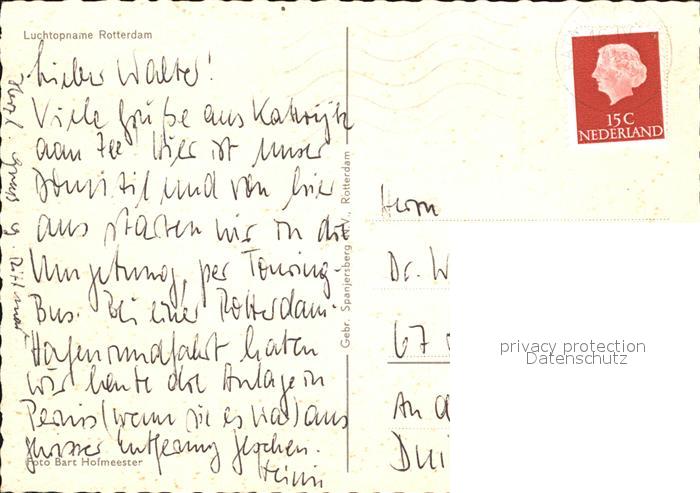 Luchtopname Rotterdam
Lieber Walter!
Viele Grüße aus Katwijk
aan Zee. Hier ist unser
Domizil und von hier
aus starten wir in die
Umgebung, per Touring-
Bus. Bei einer Rotterdam-
Hafenrundfahrt haben
wir heute die Anlage in
Pernis (wenn sie es war) aus
grosser Entfernung gesehen.
Foto Bart Hofmeester
Herzl. Gruss
Gebr. Spanjersberg N.V., Rotterdam
15 C
NEDERLAND
Herrn
Dr. W
67
An d
Dui
privacy protection
Datenschutz